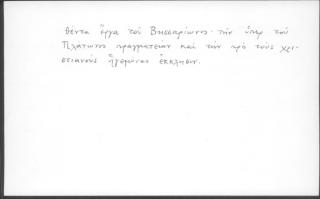 θέντα ἔργα τοῦ Βησσαρίωνος· τὴν ὑπὲρ τοῦ
Πλάτωνος πραγματείαν καὶ τὴν πρὸ τοὺς χρι-
στιανοὺς ἡγεμόνας ἔκκλησιν.